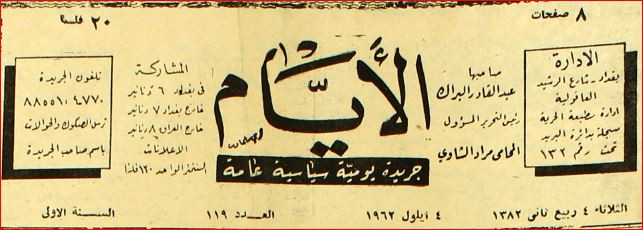 ٨ صفحات
٢٠ فلسا
الادارة
بغداد ـ شارع الرشيد
العاقولية
ادارة مطبعة الحرية
مسجلة بدائرة البريد
تحت رقم ١٣٢
صاحبها
عبدالقادر البراك
رئيس التحرير المسؤول
المحامي مراد الشاوي
الأيام
جريدة يومية سياسية عامة
المشاركة
في بغداد ٦ دنانير
خارج بغداد ٧ دنانير
خارج العراق ٨ دنانير
الاعلانات
السنتمتر الواحد ١٢٠ فلسا
تلفون الجريدة
٨٨٥٥١٠٤٧٧٠
ترسل الصكوك والحوالات
باسم صاحب الجريدة
الثلاثاء ٤ ربيع ثاني ١٣٨٢
٤ ايلول ١٩٦٢
العدد ١١٩
السنة الاولى